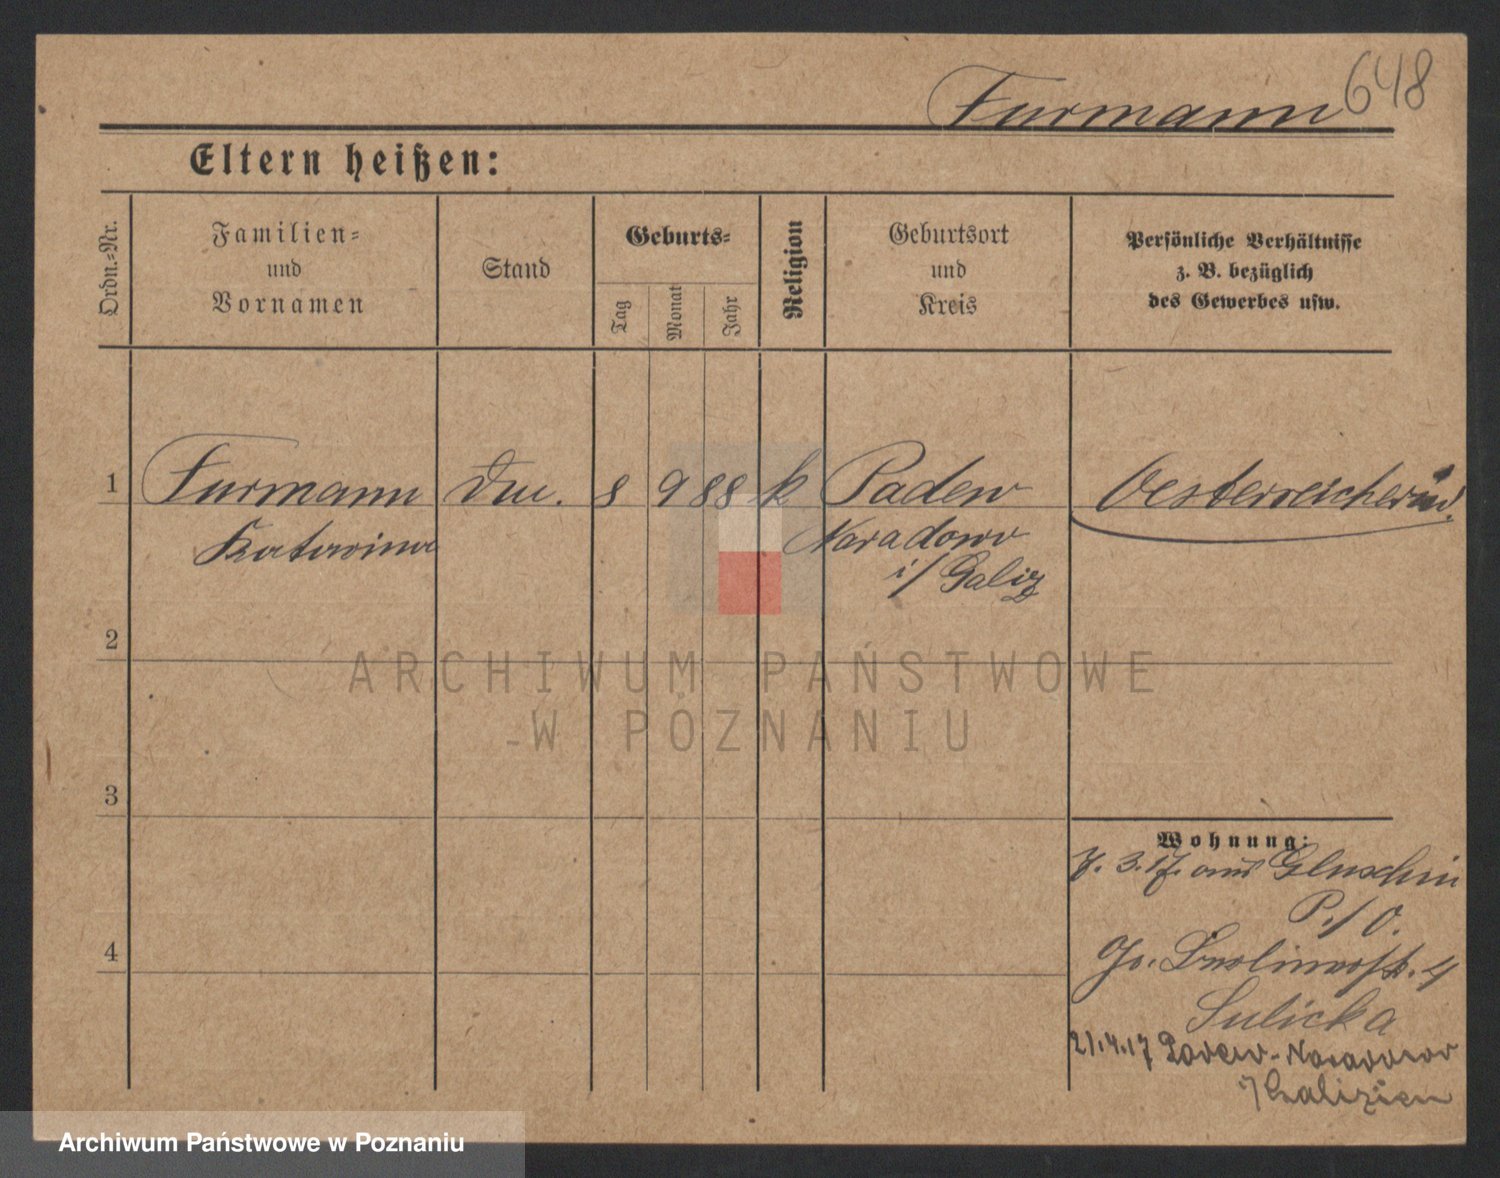 Furmann 648
Eltern heißen:
Ordn.-Nr.
Familien=
und
Vornamen
Stand
Geburts=
Tag
Monat
Jahr
Religion
Geburtsort
und
Kreis
Persönliche Verhältnisse
z. B. bezüglich
des Gewerbes usw.
1 Furmann 8 9 88 k Padew Oesterreicherin
Katarina Naradowo
i/ Galiz
2
ARCHIWUM PAŃSTWOWE
W POZNANIU
3
Wohnung:
7. 3. 17. aus Gluschin
P./O.
4
Gr. 4
Sulicka
21.4.17 Padew-Naradowo
i/Galizien
Archiwum Państwowe w Poznaniu